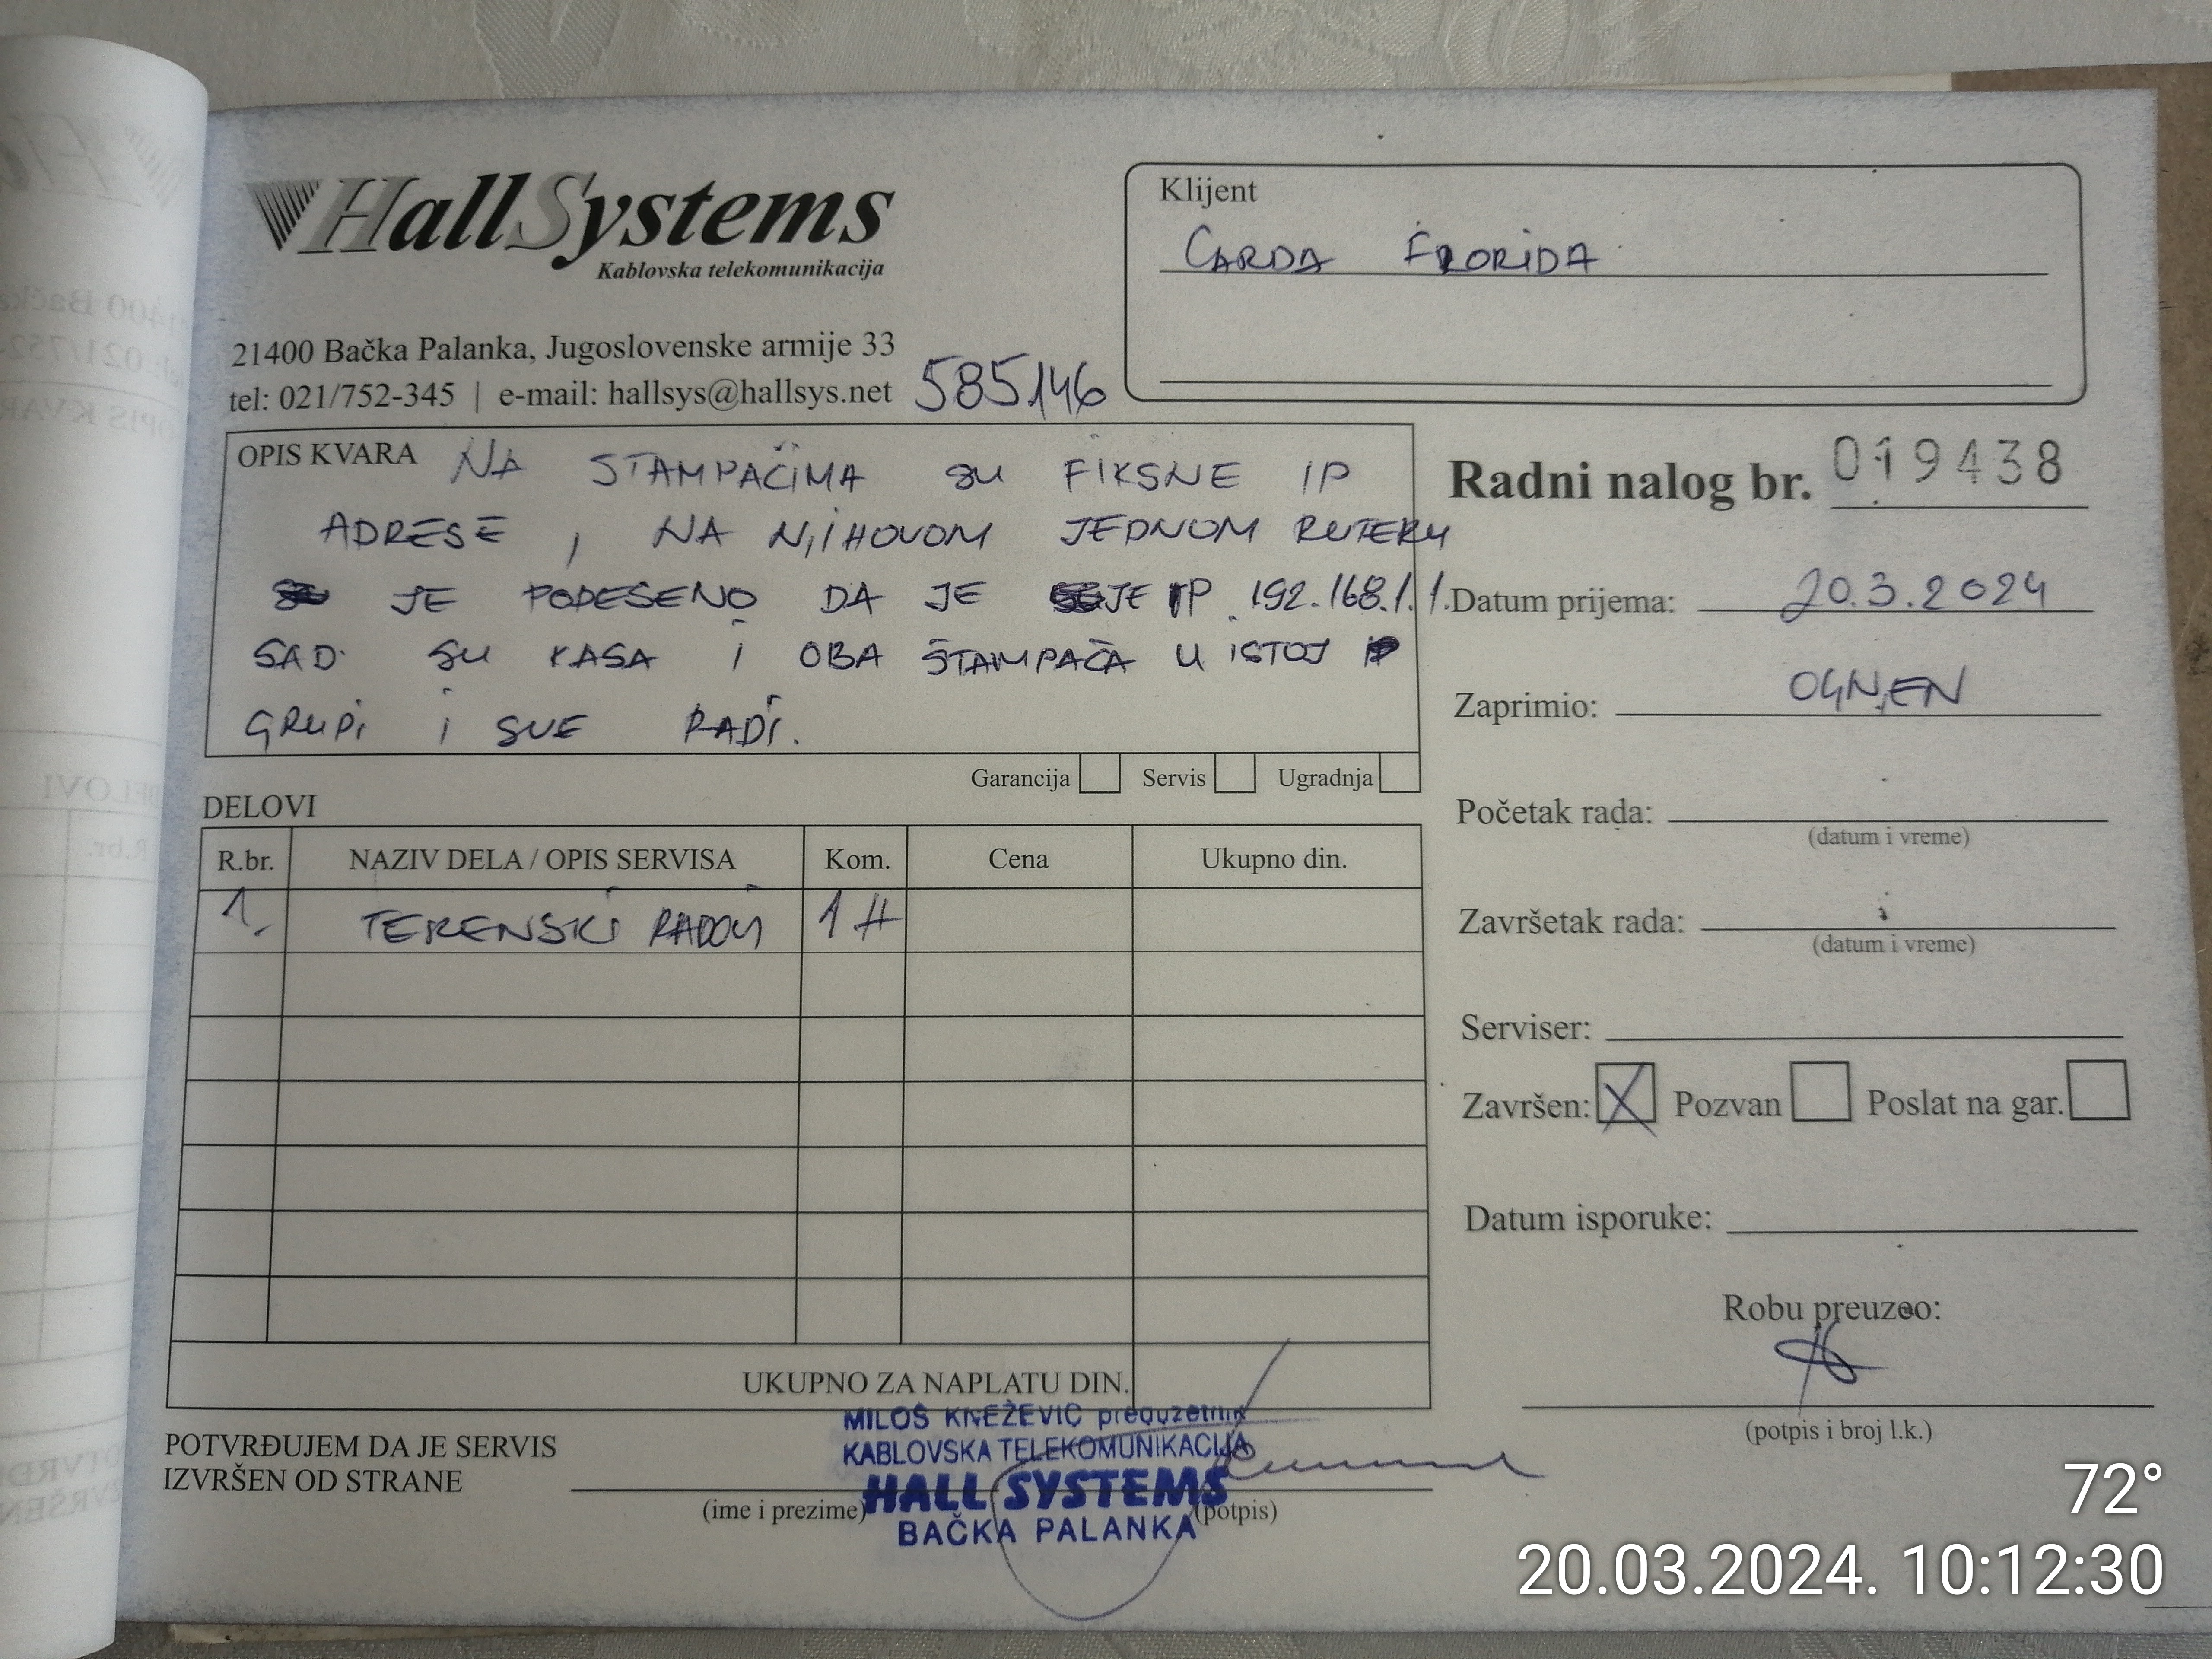 HallSystems
Kablovska telekomunikacija
21400 Bačka Palanka, Jugoslovenske armije 33
tel: 021/752-345 | e-mail: hallsys@hallsys.net
585146
Klijent
ČARDA FLORIDA
OPIS KVARA NA STAMPAČIMA SU FIKSNE IP
ADRESE, NA NJIHOVOM JEDNOM RUTERU
JE PODEŠENO DA JE JE IP 192.168.1.1.
SAD SU KASA I OBA ŠTAMPAČA U ISTOJ
GRUPI I SVE RADI.
Garancija Servis Ugradnja
Radni nalog br. 019438
Datum prijema: 20.3.2024
Zaprimio: OGNJEN
Početak rada:
(datum i vreme)
Završetak rada:
(datum i vreme)
Serviser:
Završen: X Pozvan Poslat na gar.
Datum isporuke:
Robu preuzeo:
(potpis i broj l.k.)
DELOVI
R.br. NAZIV DELA / OPIS SERVISA Kom. Cena Ukupno din.
1. TERENSKI RADOVI 1H
UKUPNO ZA NAPLATU DIN.
POTVRĐUJEM DA JE SERVIS
IZVRŠEN OD STRANE
(ime i prezime) (potpis)
MILOŠ KNEŽEVIĆ preduzetnik
KABLOVSKA TELEKOMUNIKACIJA
HALL SYSTEMS
BAČKA PALANKA
72°
20.03.2024. 10:12:30